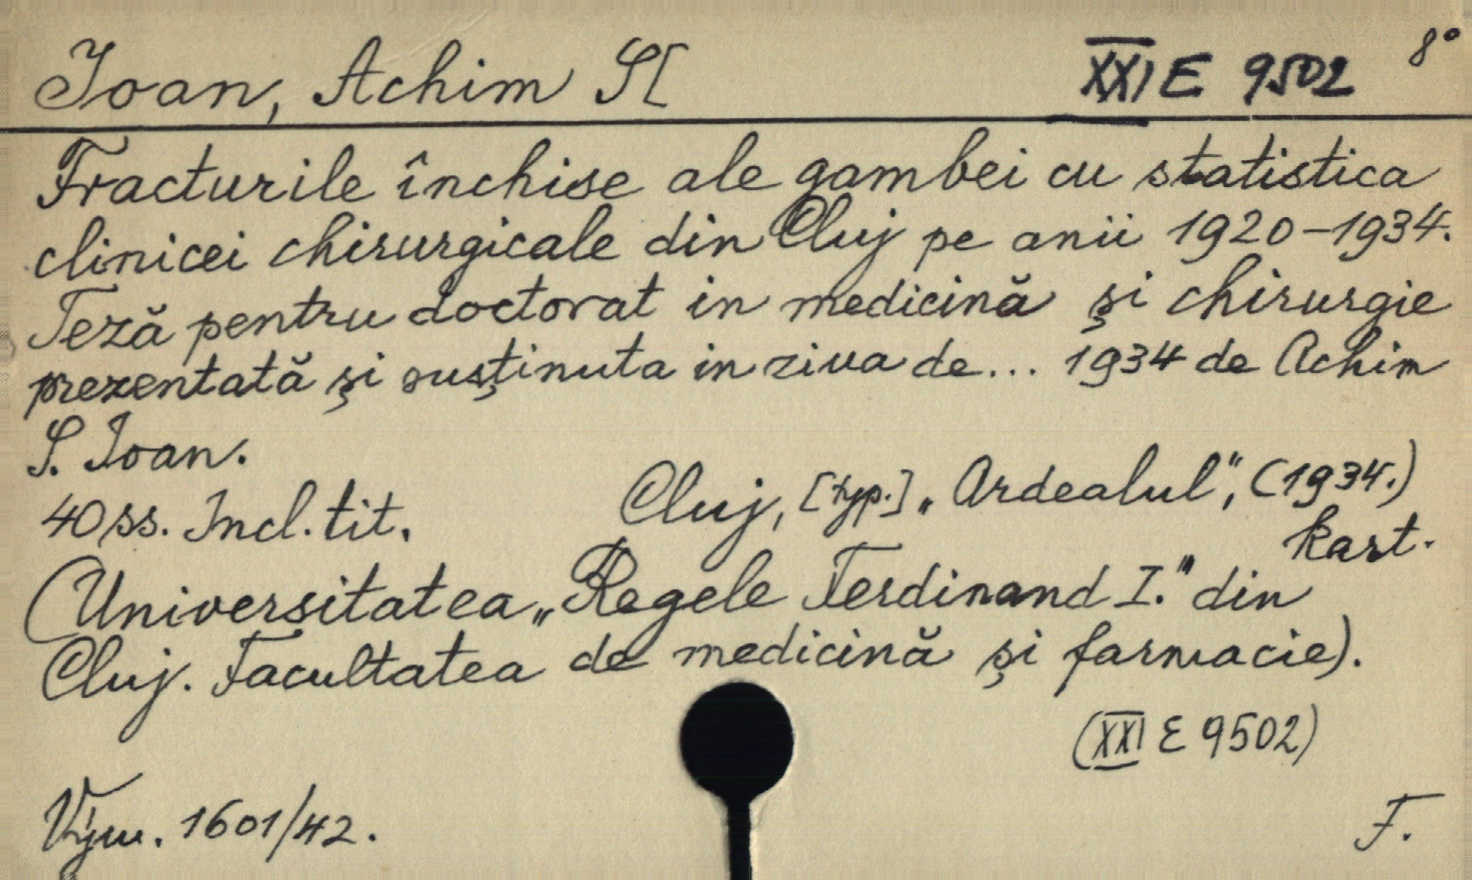 Ioan, Achim S[ XXI E 9502 8°
Fracturile închise ale gambei cu statistica
clinicei chirurgicale din Cluj pe anii 1920-1934.
Teză pentru doctorat in medicină și chirurgie
prezentată și susținuta in ziua de... 1934 de Achim
S. Ioan.
Cluj, [typ.] „Ardealul", (1934.)
40 ss. Incl. tit. kart.
(Universitatea „Regele Ferdinand I." din
Cluj. Facultatea de medicină și farmacie).
(XXI E 9502)
Vým. 1601/42. F.